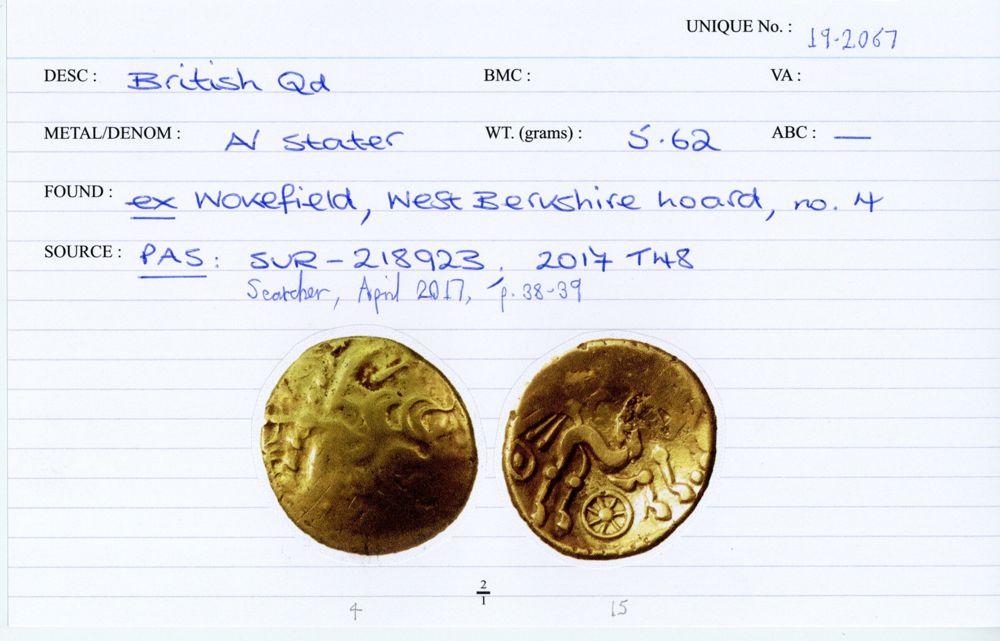 UNIQUE No. : 19-2067
DESC : British Qd BMC : VA :
METAL/DENOM : AV stater WT. (grams) : 5.62 ABC : —
FOUND : ex Wokefield, West Berkshire hoard, no. 4
SOURCE : PAS: SUR-218923. 2017 T48
Searcher, April 2017, p. 38-39
2
1
4 15